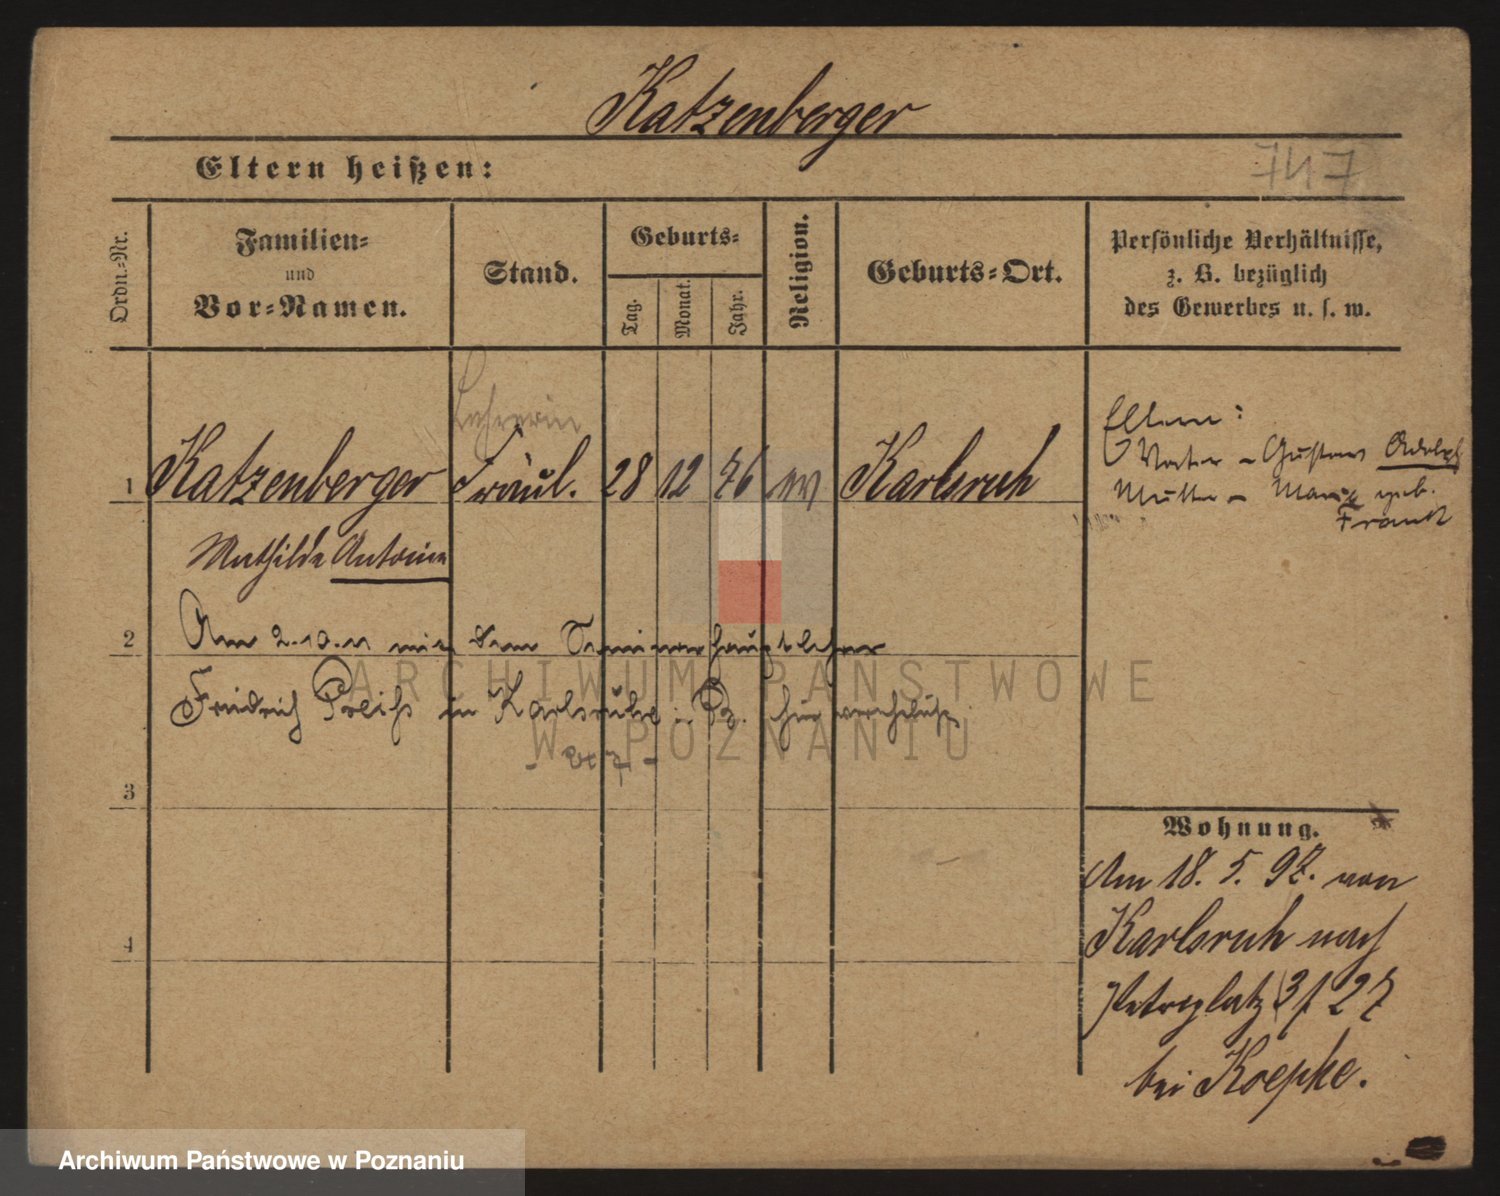 Katzenberger
Eltern heißen:
747
Ordn.-Nr.
Familien-
und
Vor-Namen.
Stand.
Geburts-
Tag.
Monat.
Jahr.
Religion.
Geburts-Ort.
Persönliche Verhältnisse,
z. B. bezüglich
des Gewerbes u. s. w.
Lehrerin
1 Katzenberger Fräul. 28 12 76 ev Karlsruh
Mathilde Antonie
Eltern:
Vater - Gustav Adolph
Mutter - Marie geb.
Frank
2 Am 2.10.11 mit dem Seminarhauptlehrer
Friedrich Preiß in Karlsruhe i. hier verehelicht
3
4
Wohnung.
Am 18. 5. 97. von
Karlsruh nach
Petriplatz 3 / 27
bei Koepke.
ARCHIWUM PAŃSTWOWE
W POZNANIU
Archiwum Państwowe w Poznaniu